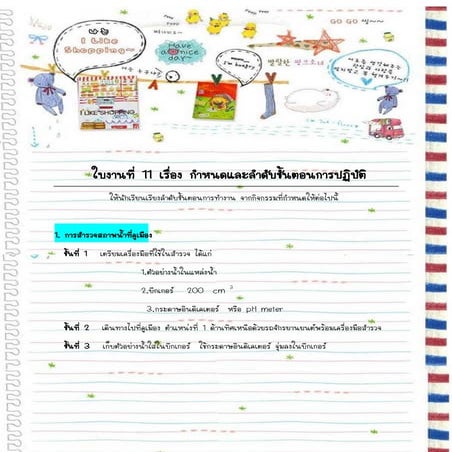 I Like
Shopping~
Have
a nice
day~
GO GO
I LIKE SHOPPING
ใบงานที่ 11 เรื่อง กำหนดและลำดับขั้นตอนการปฏิบัติ
ให้นักเรียนเรียงลำดับขั้นตอนการทำงาน จากกิจกรรมที่กำหนดให้ต่อไปนี้
1. การสำรวจสภาพน้ำที่คูเมือง
ขั้นที่ 1 เตรียมเครื่องมือที่ใช้ในสำรวจ ได้แก่
1.ตัวอย่างน้ำในแหล่งน้ำ
2.บีกเกอร์ 200 cm 3
3.กระดาษอินดิเคเตอร์ หรือ pH meter
ขั้นที่ 2 เดินทางไปที่คูเมือง ตำแหน่งที่ 1 ด้านทิศเหนือด้วยรถจักรยานยนต์พร้อมเครื่องมือสำรวจ
ขั้นที่ 3 เก็บตัวอย่างน้ำใส่ในบีกเกอร์ ใช้กระดาษอินดิเคเตอร์ จุ่มลงในบีกเกอร์